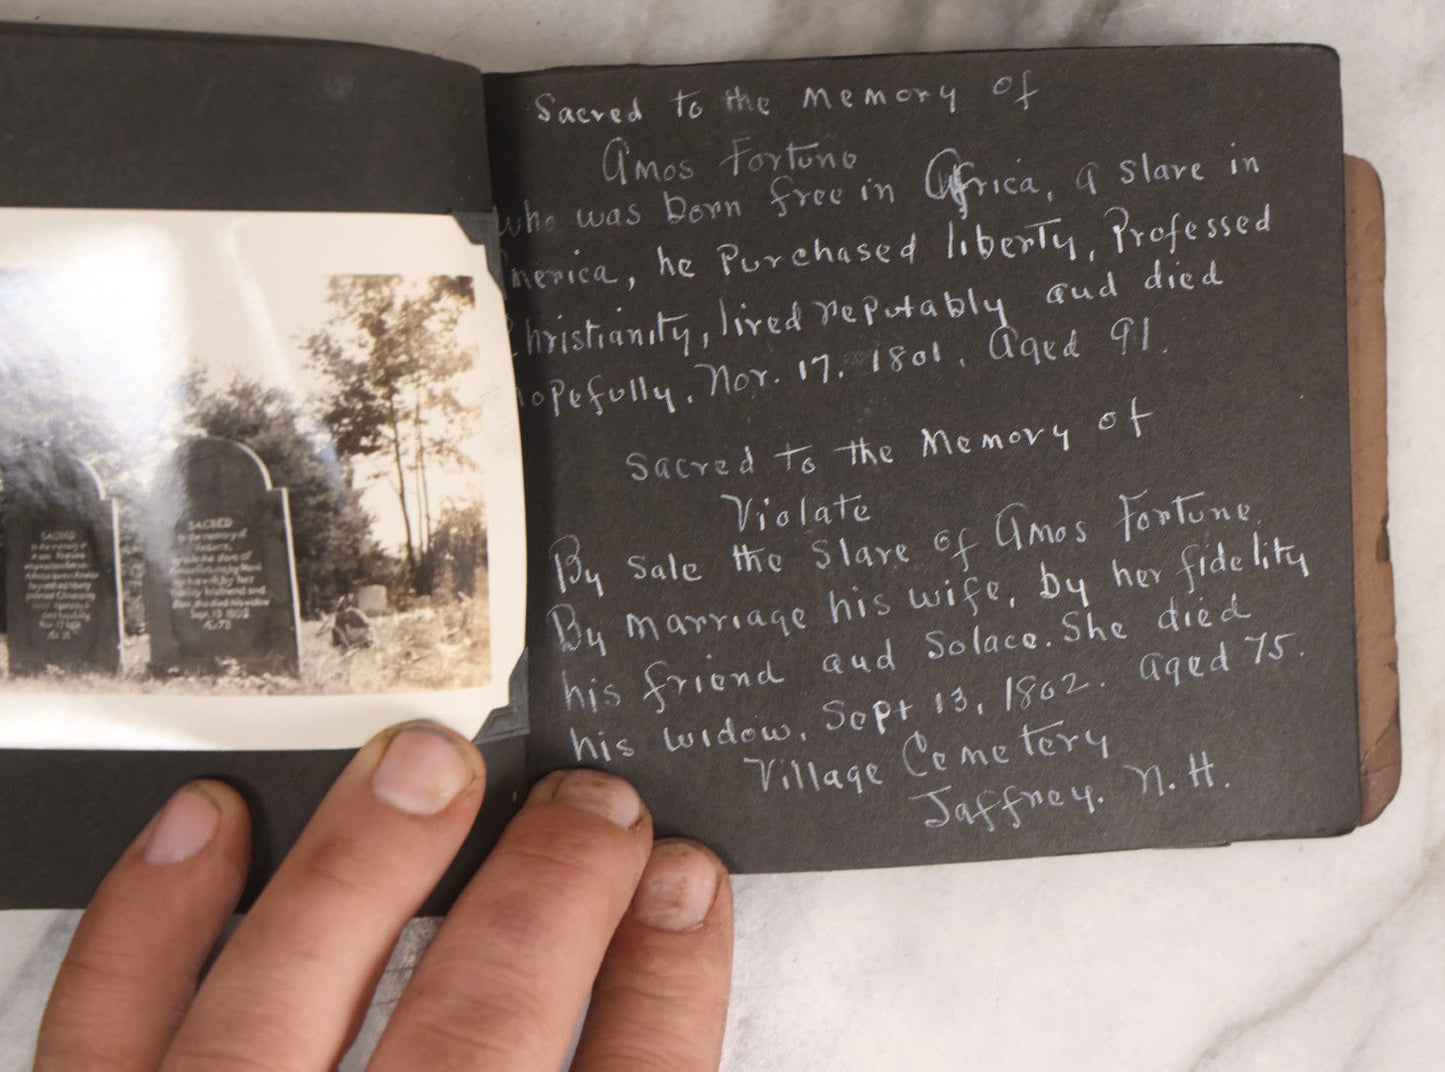 SACRED
to the memory of
SACRED
to the memory of
by sale the slave of
by his wife, by her
husband and
she died his widow
Sept. 13 1802
Æt. 73
Sacred to the Memory of
Amos Fortune
who was born free in Africa, a slave in
America, he Purchased liberty, Professed
Christianity, lived reputably and died
hopefully, Nov. 17, 1801, Aged 91.
Sacred to the Memory of
Violate
By sale the slave of Amos Fortune.
By marriage his wife, by her fidelity
his friend and solace. She died
his widow, Sept 13, 1802. Aged 75.
Village Cemetery
Jaffrey. N.H.